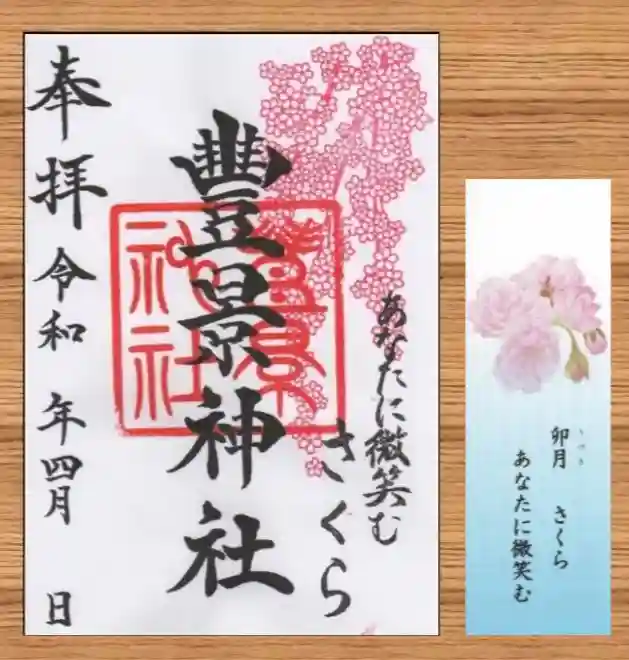 さくら
あなたに微笑む
豊景神社
豐景神社
奉拝 令和 年四月 日
卯月 さくら
うづき
あなたに微笑む